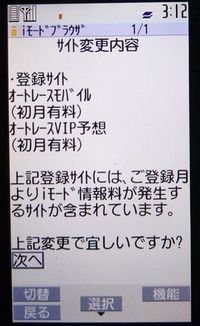 3:12
iモードブラウザ 1/1
サイト変更内容
・登録サイト
オートレースモバイル
(初月有料)
オートレースVIP予想
(初月有料)
上記登録サイトには、ご登録月
よりiモード情報料が発生す
るサイトが含まれています。
上記変更で宜しいですか?
次へ
切替 機能
選択
戻る